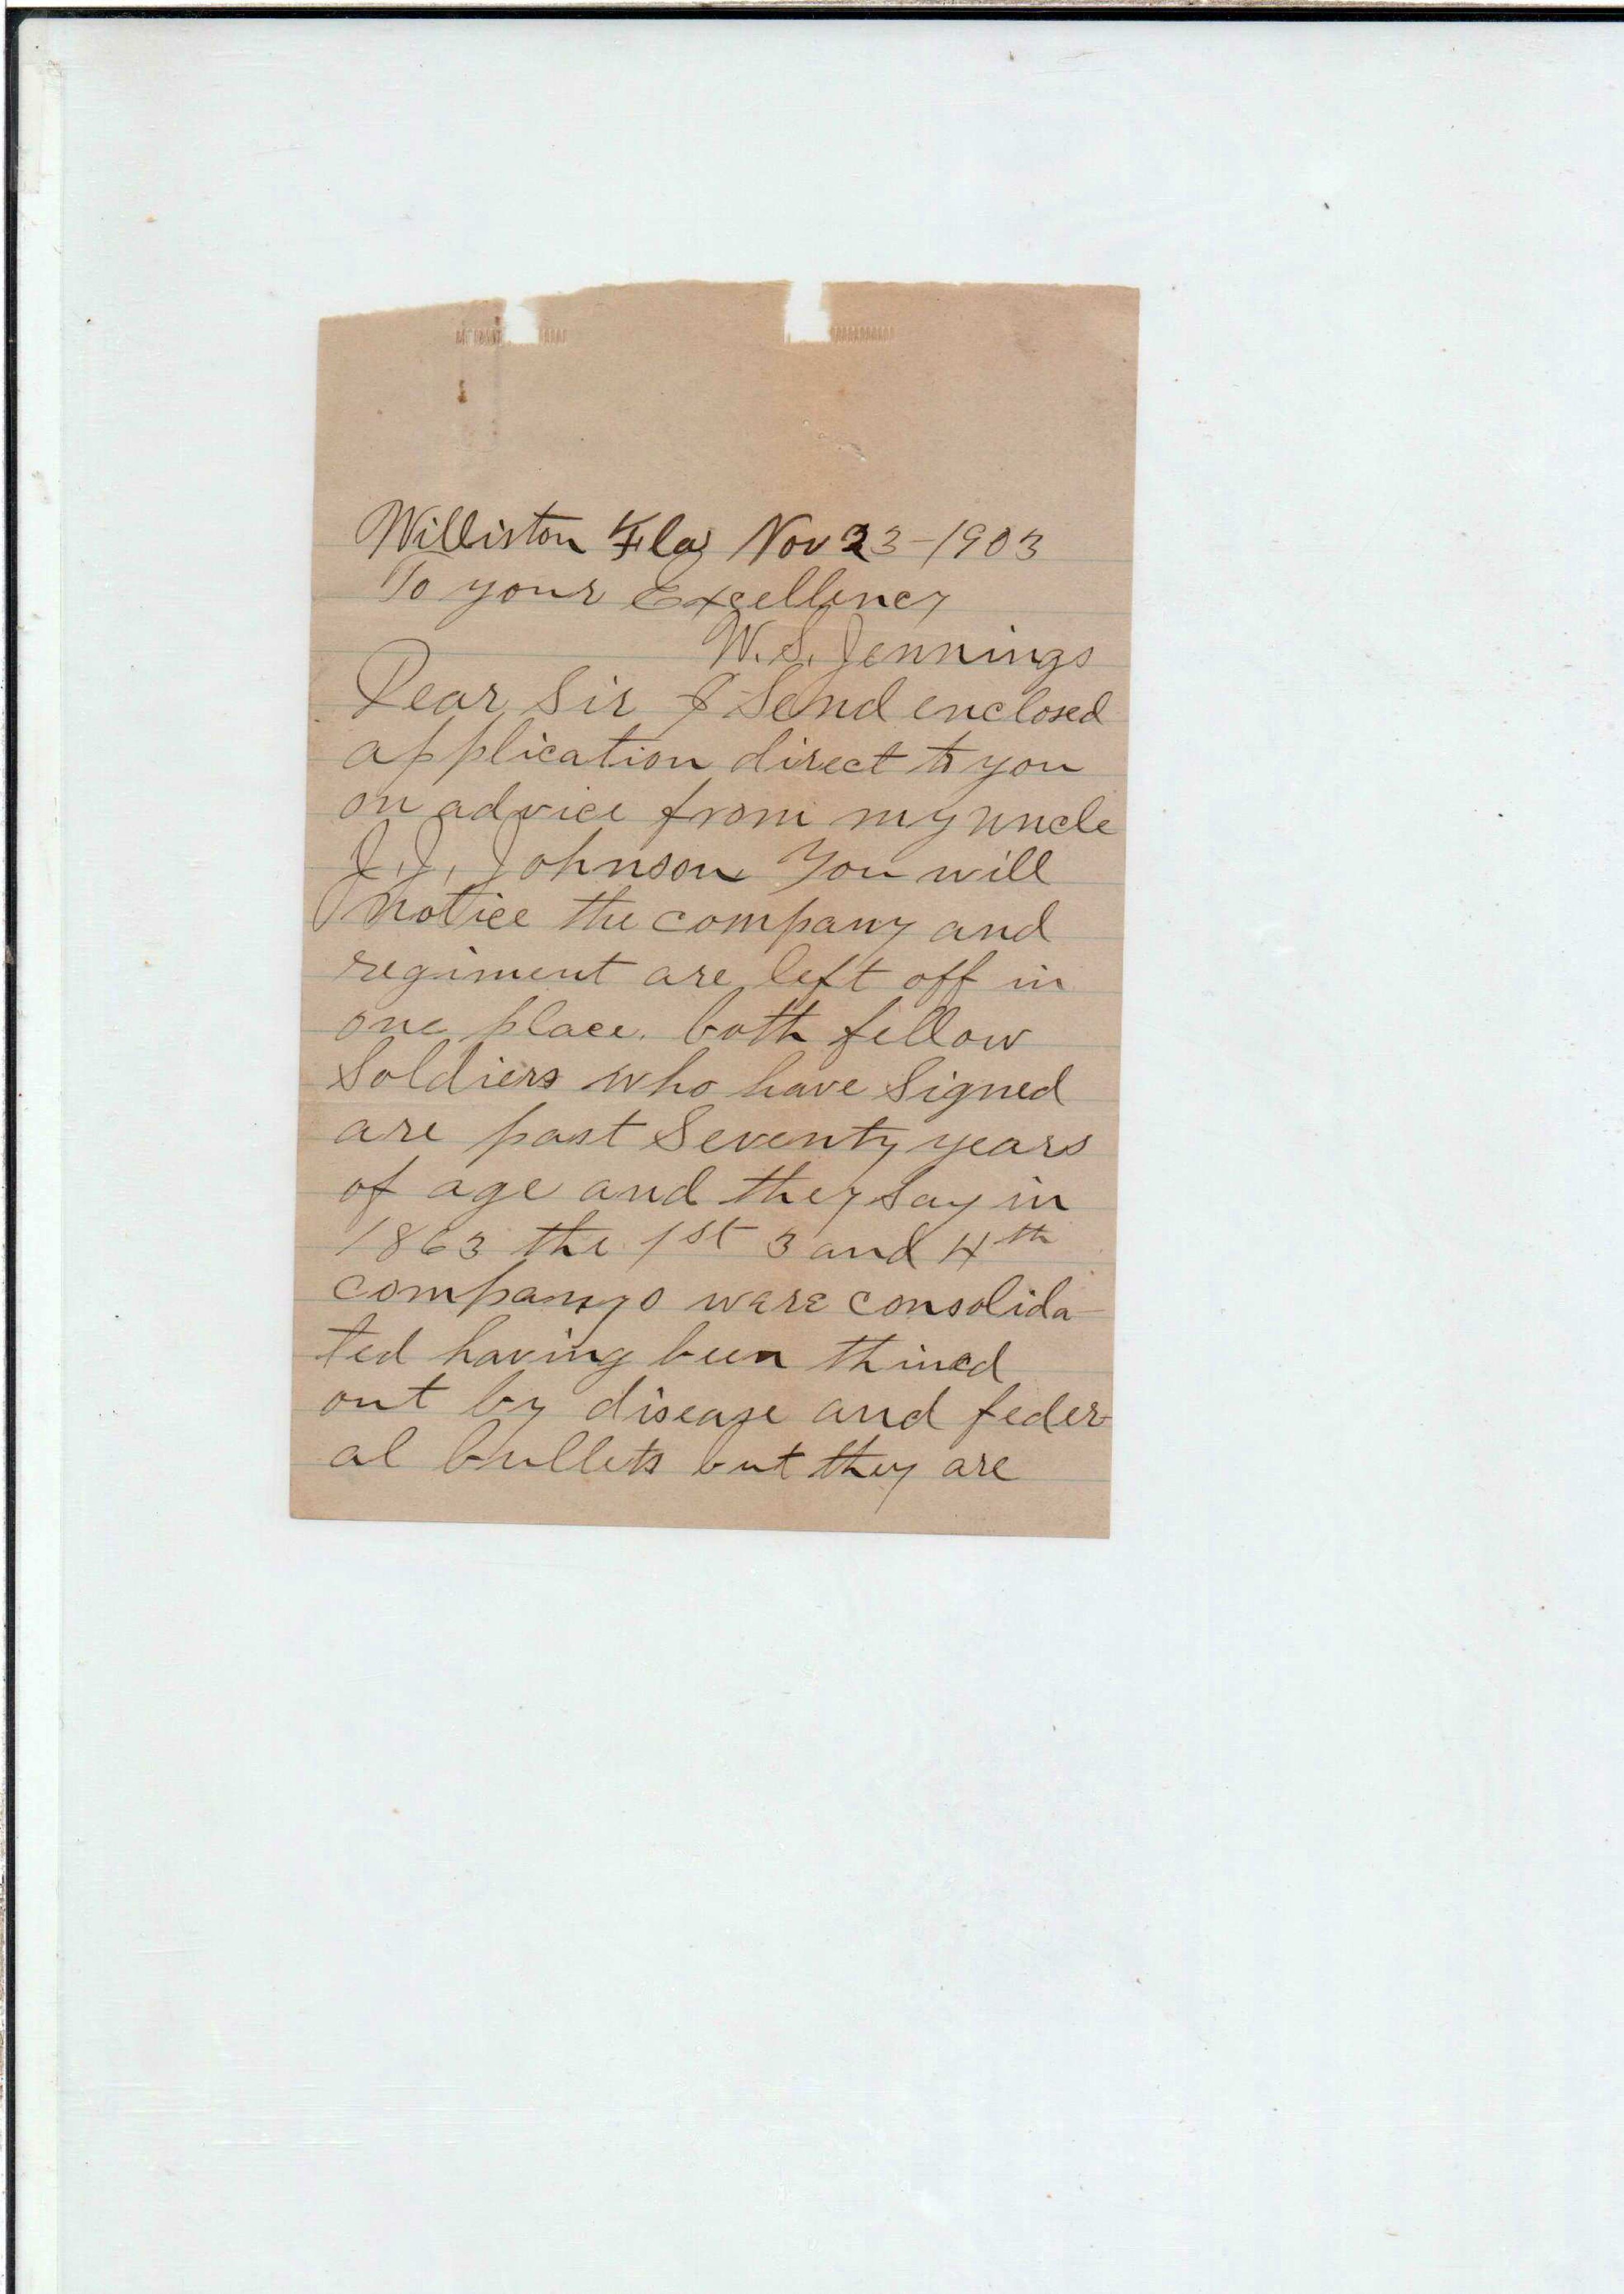 Williston Fla Nov 23-1903
To your Excellency
W. S. Jennings
Dear Sir I Send enclosed
application direct to you
on advice from my uncle
J. J. Johnson You will
notice the company and
regiment are left off in
one place. both fellow
Soldiers who have Signed
are past Seventy years
of age and they Say in
1863 the 1st 3 and 4th
companys were consolida-
ted having been thined
out by disease and feder-
al bullets but they are